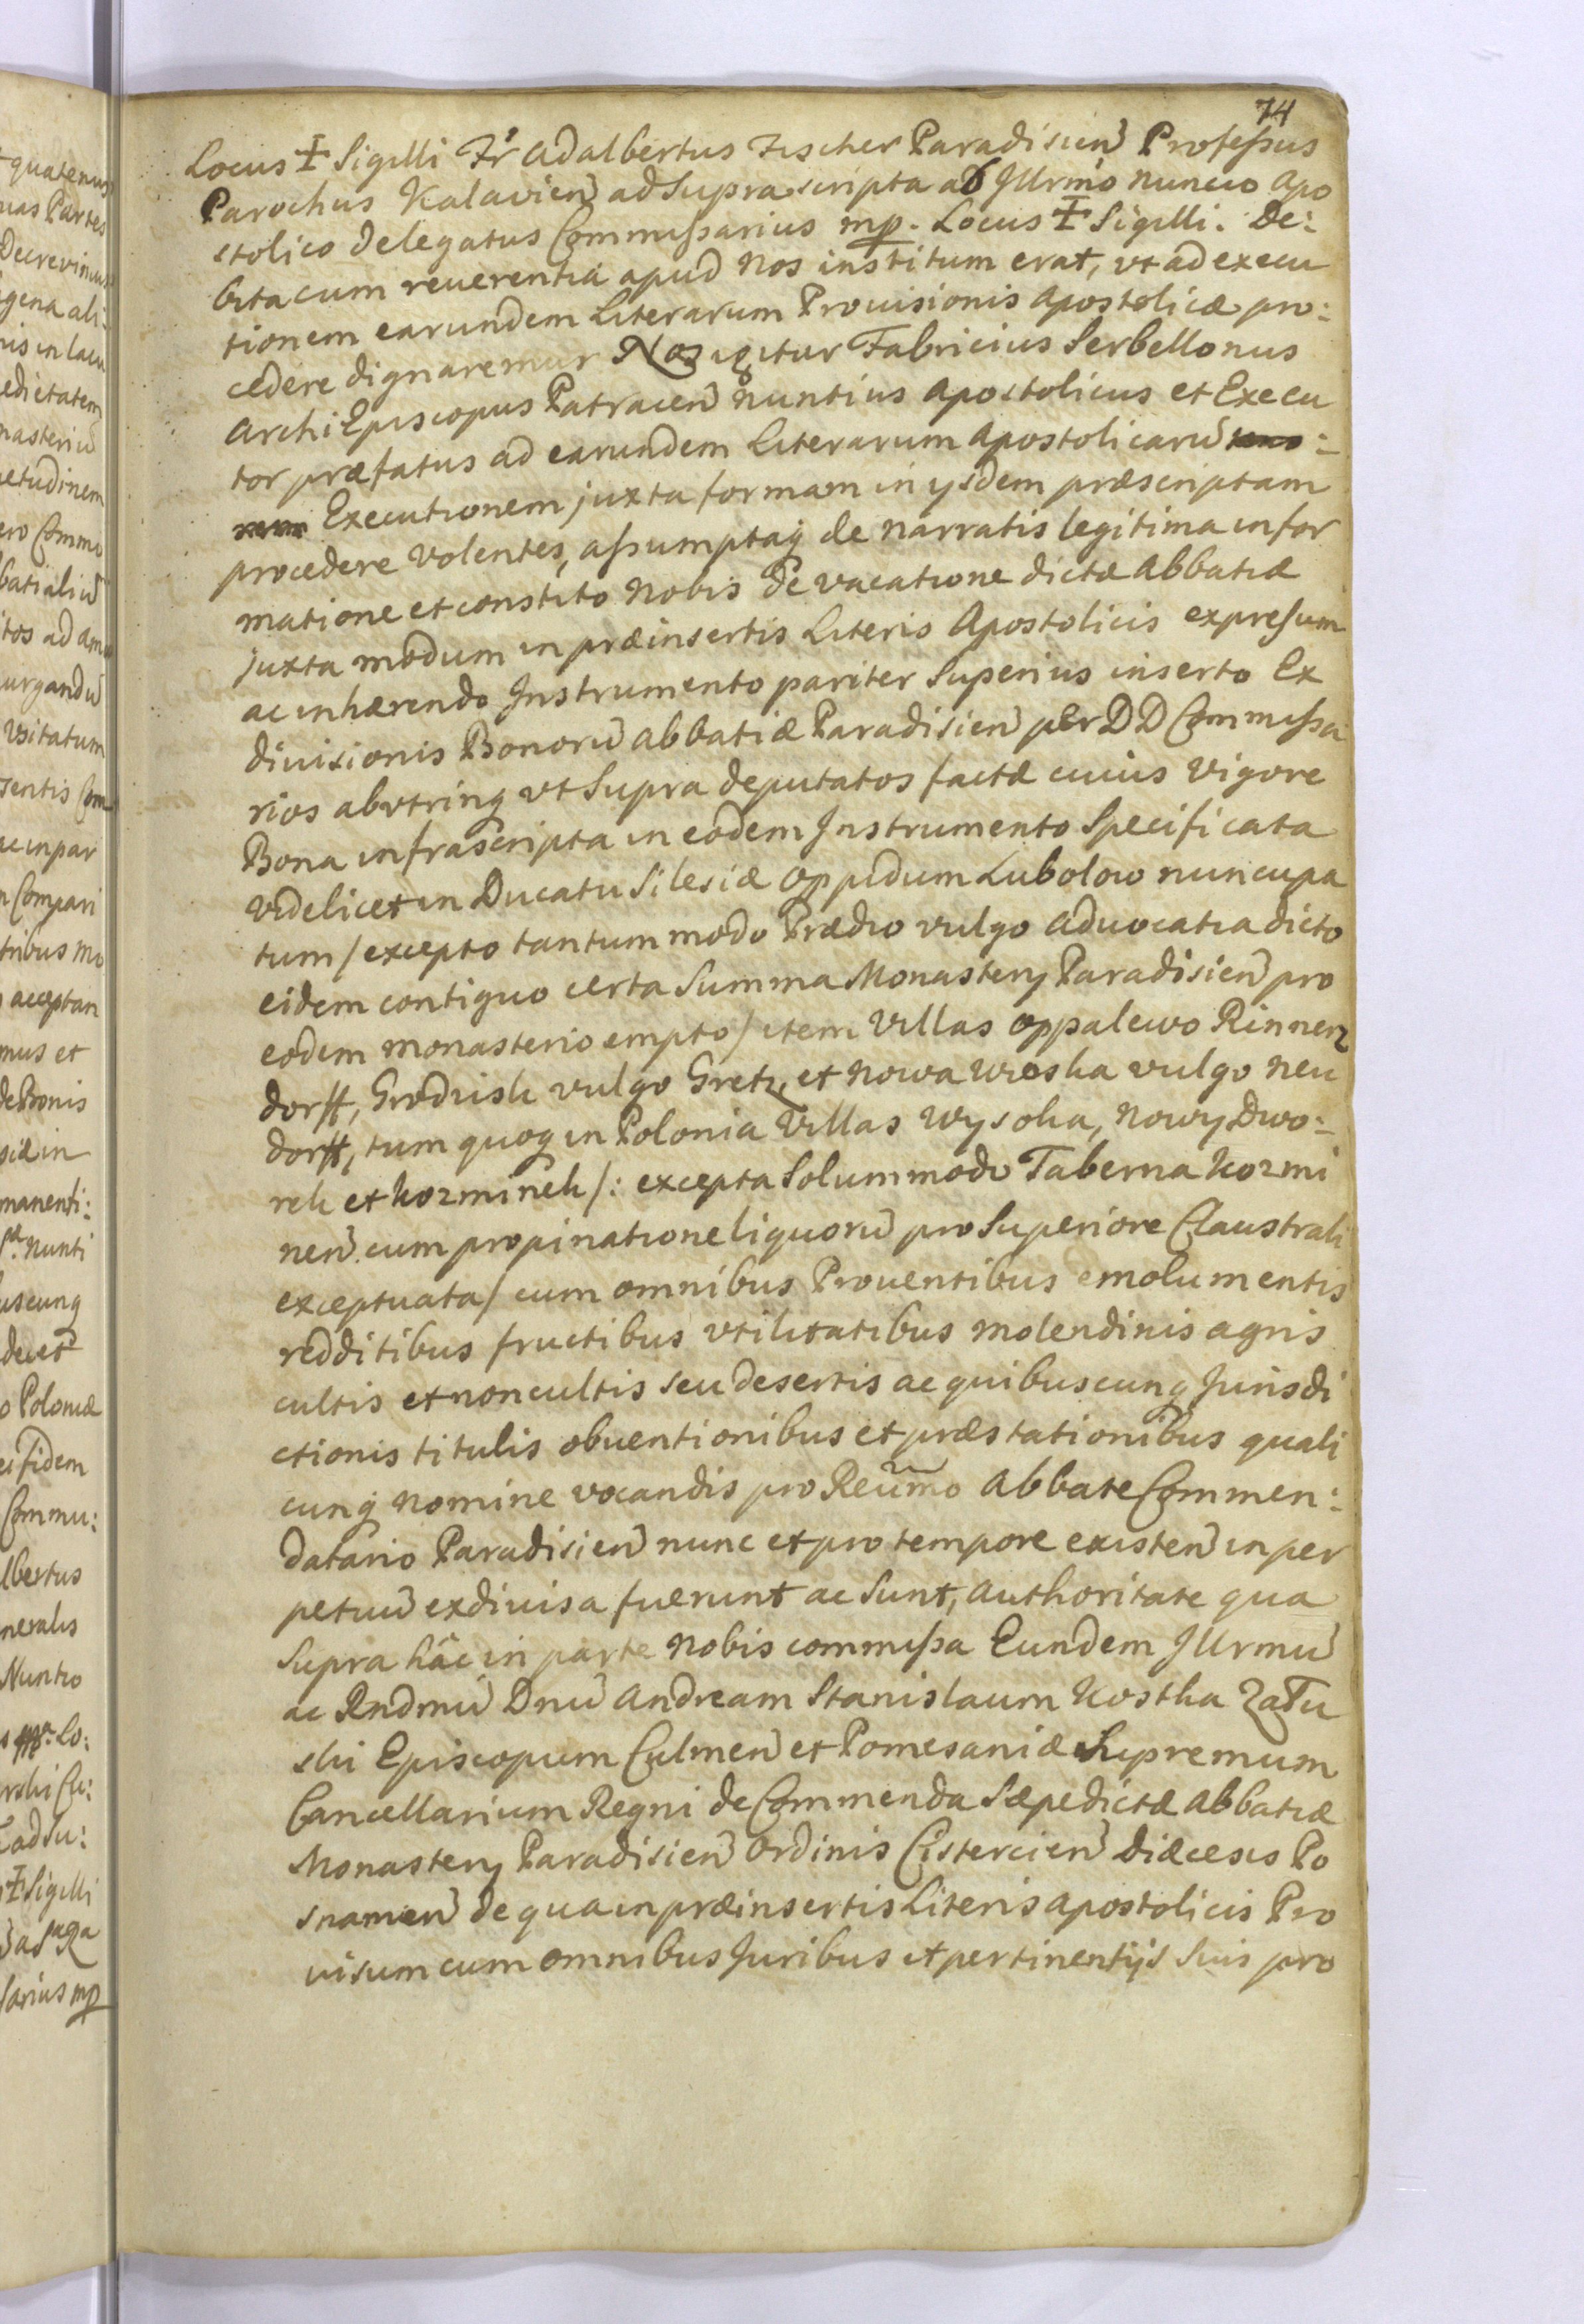 74
Locus ‡ Sigilli Fr Adalbertus Fischer Paradisien̄ Professus
Parochus Kalavien̄ ad supra scripta ab Jllrmo Nuncio Apo
stolico delegatus Commissarius mp. Locus ‡ Sigilli. De:
bita cum reuerentia apud Nos institum erat, vt ad execu
tionem earundem Literarum Prouisionis Apostolicæ pro:
cedere dignaremur Nos igitur Fabricius Serbellonus
ArchiEpiscopus Patracen̄ Nuntius Apostolicus et Execu
tor præfatus ad earundem Literarum Apostolicarū
Executionem juxta formam in ysdem præscriptam
procedere volentes, assumptaq de narratis legitima infor
matione et constito Nobis de vacatione dictæ Abbatiæ
juxta modum in præinsertis Literis Apostolicis expressum
ac inhærendo Jnstrumento pariter superius inserto Ex
diuisionis Bonorū Abbatiæ Paradisien̄ per DD Commissa
rios ab vtrinq vt supra deputatos factæ cuius vigore
Bona infrascripta in eodem Jnstrumento Specificata
videlicet in Ducatu Silesiæ Oppidum Lubolow nuncupa
tum / excepto tantummodo Prædio vulgo Aduocatia dicto
eidem contiguo certa Summa Monastery Paradisien̄ pro
eodem monasterio empto / item Villas Oppalewo Rinnerz
dorff, Grodzisk vulgo Gretz, et Nowa Wioska vulgo Neu
dorff, tum quoq in Polonia Villas Wysoka, Nowy Dwo:
rek et Kozminek /: excepta Solummodo Taberna Kozmi
nen̄ cum propinatione liquorū pro Superiore Claustrali
exceptuata / cum omnibus Prouentibus emolumentis
redditibus fructibus vtilitatibus molendinis agris
cultis et non cultis seu desertis ac quibuscunq Jurisdi
ctionis titulis obuentionibus et præstationibus quali
cunq nomine vocandis pro Reūmo Abbate Commen:
datario Paradisien̄ nunc et pro tempore existen̄ in per
petuū exdiuisa fuerunt ac sunt, Authoritate qua
supra hâc in parte Nobis commissa Eundem Jllrmū
ac Rndmū Dnū Andream Stanislaum Kostka Zału
ski Episcopum Culmen̄ et Pomesaniæ Supremum
Cancellarium Regni de Commenda Sæpedictæ Abbatiæ
Monastery Paradisien̄ Ordinis Cistercien̄ Diæcesis Po
snanien̄ de qua in præinsertis Literis Apostolicis Pro
uisum cum omnibus Juribus et pertinentijs suis pro